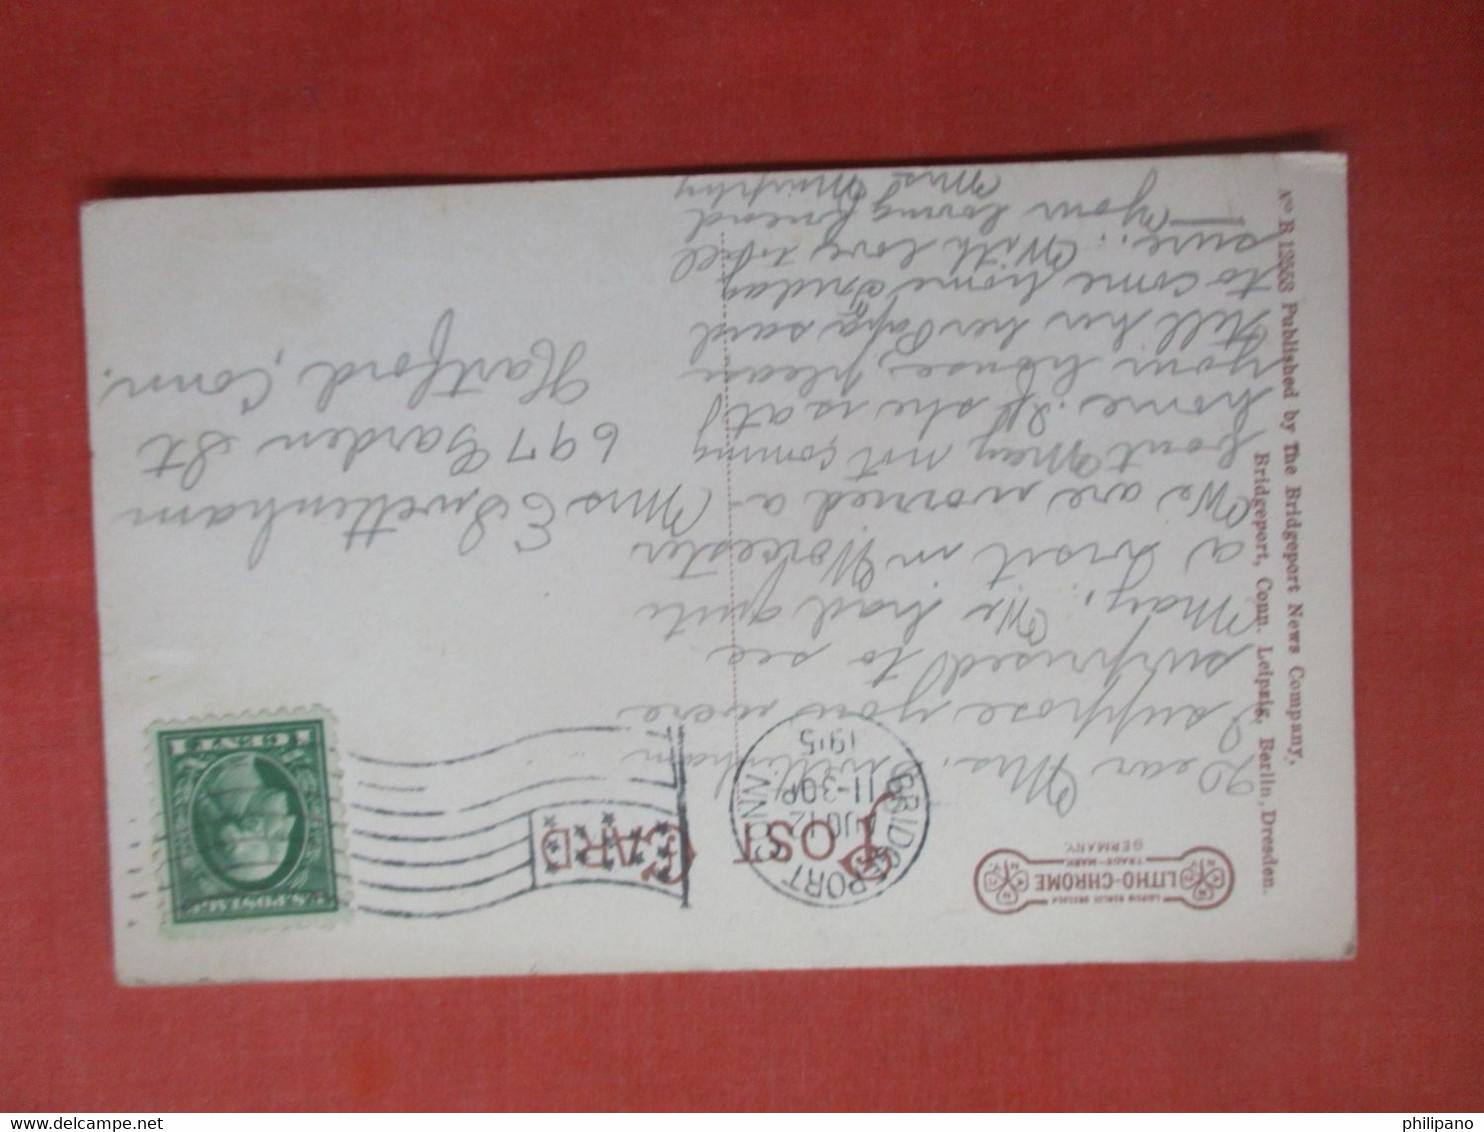 No. R 12553 Published by The Bridgeport News Company,
Bridgeport, Conn. Leipzig, Berlin, Dresden.
LITHO-CHROME
TRADE-MARK
GERMANY.
POST CARD
BRIDGEPORT CONN
12
11-30P
1915
U.S. POSTAGE
1 CENT 1
Dear Mrs.
I suppose you were
surprised to see
May. We had quite
a visit in Worcester
We are worried a-
bout May not coming
home. If she is at
your house, please
tell her her Papa said
to come home Friday
sure. With love to all
Your loving friend
Mrs Murphy
Mrs E Swettenham
697 Garden St
Hartford, Conn.
philipano